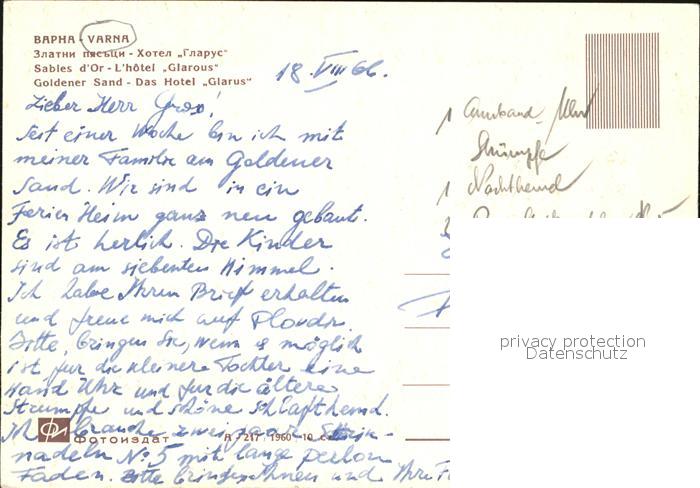 ВАРНА - VARNA
Златни пясъци - Хотел „Гларус"
Sables d'Or - L'hôtel „Glarous"
Goldener Sand - Das Hotel „Glarus"
18. VIII 66.
Lieber Herr Gross!
Seit einer Woche bin ich mit
meiner Familie am Goldener
Sand. Wir sind in ein
Ferien Heim ganz neu gebaute.
Es ist herlich. Die Kinder
sind am siebenten Himmel.
Ich habe Ihren Brief erhalten
und freue mich auf Plovdiv.
Bitte, bringen Sie, wenn es möglich
ist, für die kleinere Tochter eine
Hand Uhr und für die ältere
Strümpfe und schöne Schlafthemd.
Ich brauche zwei paar Strick-
nadeln No 5 mit lange perlon
Faden. Bitte und Ihre
ФОТОИЗДАТ A / 217 1960 10
1 Armband-Uhr
Strümpfe
1 Nachthemd
privacy protection
Datenschutz